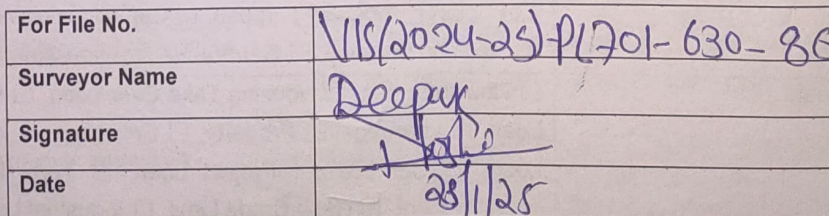 For File No. VIS(2024-25)-PL701-630-86
Surveyor Name Deepak
Signature
Date 28/1/25